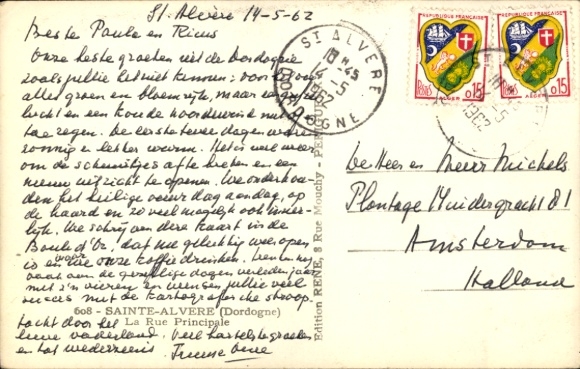 St. Alvère 14-5-62
Beste Paula en Rinus
Onze beste groeten uit de Dordogne
zoals jullie het niet kennen: voor
alles groen en bloemrijk, maar
lucht en een koude noordenwind met
toe regen. De eerste twee dagen waren
zonnig en lekker warm. Het is wel weer
om de scheurtjes af te breken en een
nieuw uitzicht te openen. We onderhou-
den het heilige vuur dag aan dag, op
de haard en zo veel mogelijk ook inner-
lijk. We schrijven deze kaart in de
Boule d'Or, dat nu gelukkig weer open
is en waar we onze koffie drinken.
vaak aan de gezellige dagen verleden jaar
met z'n vieren en wensen jullie veel
succes met de kartografische stroop-
tocht door het
lieve vaderland. Veel hartelijke groeten
en tot wederziens.
608 - SAINTE-ALVERE (Dordogne)
La Rue Principale
Edition RENE, 8 Rue Mouchy -
ST ALVERE
18 H -45
14 -5
1962
DORDOGNE
REPUBLIQUE FRANÇAISE
POSTES
0,15
ALGER
REPUBLIQUE FRANÇAISE
0,15
ALGER
1962
De Heer en Mevr Michels
Plantage Muidergracht 81
Amsterdam
Holland